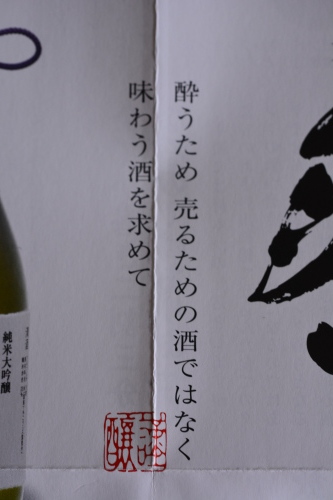 酔うため 売るための酒ではなく
味わう酒を求めて
謹醸
純米大吟醸